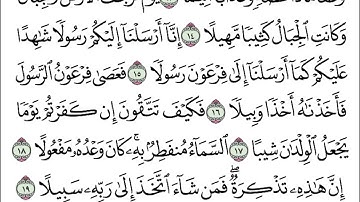 وَكَانَتِ ٱلْجِبَالُ كَثِيبًا مَّهِيلًا ١٤ إِنَّآ أَرْسَلْنَآ إِلَيْكُمْ رَسُولًا شَٰهِدًا
عَلَيْكُمْ كَمَآ أَرْسَلْنَآ إِلَىٰ فِرْعَوْنَ رَسُولًا ١٥ فَعَصَىٰ فِرْعَوْنُ ٱلرَّسُولَ
فَأَخَذْنَٰهُ أَخْذًا وَبِيلًا ١٦ فَكَيْفَ تَتَّقُونَ إِن كَفَرْتُمْ يَوْمًا
يَجْعَلُ ٱلْوِلْدَٰنَ شِيبًا ١٧ ٱلسَّمَآءُ مُنفَطِرٌۢ بِهِۦ ۚ كَانَ وَعْدُهُۥ مَفْعُولًا ١٨
إِنَّ هَٰذِهِۦ تَذْكِرَةٌ ۖ فَمَن شَآءَ ٱتَّخَذَ إِلَىٰ رَبِّهِۦ سَبِيلًا ١٩